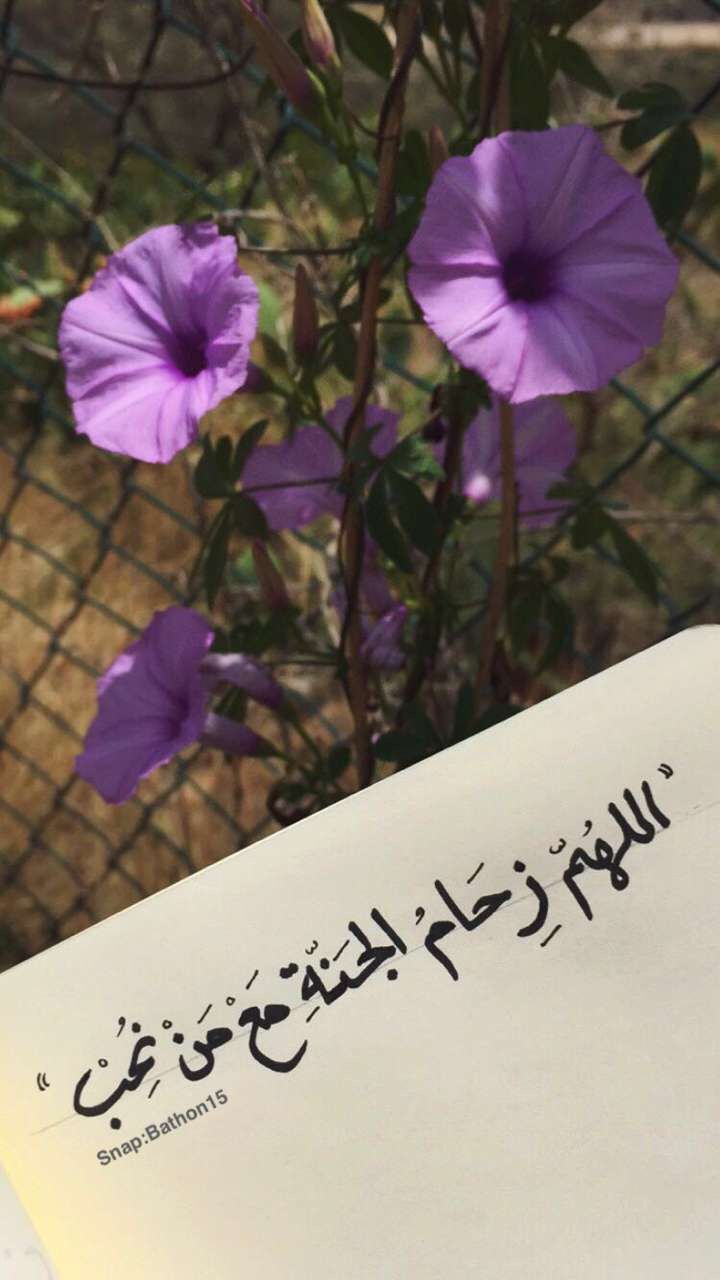 "اللهُمّ زِحَامُ الجَنّةِ مَعَ مَنْ نُحِبْ"
Snap:Bathon15